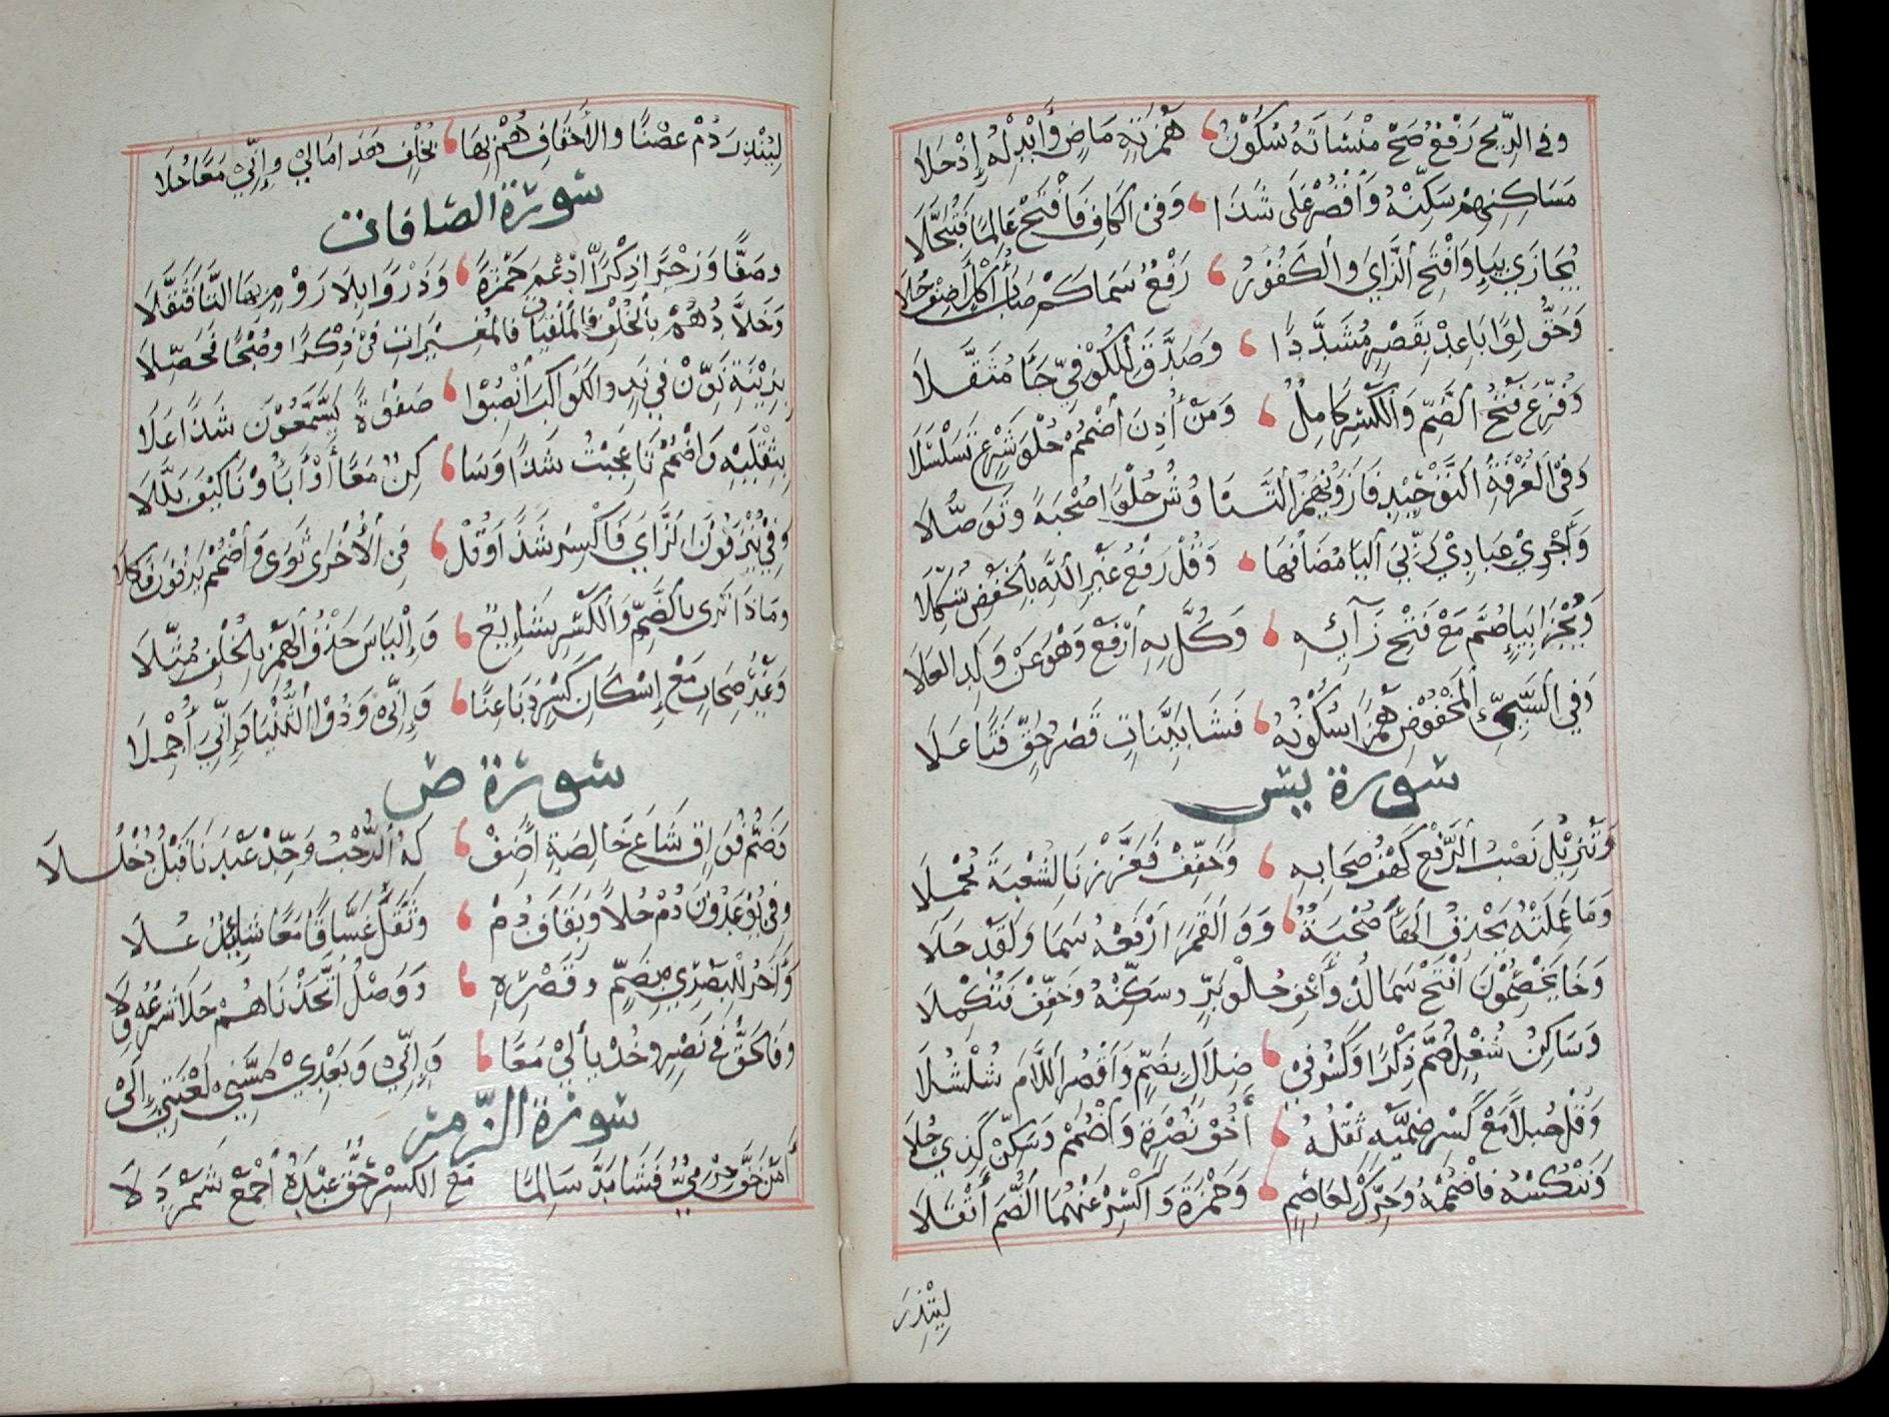 وفي الريح رفع صح منسأته سكون همزته ماض وأبدله إذ حلا
مساكنهم سكنه وأقصر على شذا وفي الكاف فافتح عالما فتبجلا
يجازي بياء وافتح الزاي والكفور رفع سماكم صاب أكل أضف حلا
وحق لوا باعد بقصر مشددا وصدق للكوفي جا مثقلا
وفزع فتح الضم والكسر كامل ومن أذن أضمم حلو شرع تسلسلا
وفي الغرفة التوحيد فاز ويهمز التناوش حلوا صحبة وتوصلا
وأجري عبادي ربي اليا مضافها وقل رفع غير الله بالخفض شكلا
ونجزي بياء ضم مع فتح زائه وكل به أرفع وهو عن ولد العلا
وفي السيئ المخفوض همزا سكونه فشا بينات قصر حق فتا علا
سورة يس
وتنزيل نصب الرفع كهف صحابه وخفف فعززنا لشعبة محملا
وما عملته يحذف الهاء صحبة و والقمر ارفعه سما ولقد حلا
وخا يخصمون افتح سما لذ وأخف حلو بر وسكنه وخفف فتكملا
وساكن شغل ضم ذكرا وكسر في ضلال بضم واقصر اللام شلشلا
وقل جبلا مع كسر ضميه ثقله أخو نصرة واضمم وسكن كذي حلا
وننكسه فاضممه وحرك لعاصم وحمزة واكسر عنهما الضم أثقلا
لينذر
لينذر دم غصنا والأحقاف هم بها بخلف هدا مالي وإني معا حلا
سورة الصافات
وصفا وزجرا ذكرا ادغم حمزة وذروا بلا روم بها التا فثقلا
وخلادهم بالخلف فالملقيات فالمغيرات في ذكرا وصبحا فحصلا
بزينة نون في ند والكواكب انصبوا صفوة يسمعون شذا علا
بثقليه واضمم تا عجبت شذا وسا كن معا أو آباؤنا كيف بللا
وفي ينزفون الزاي فاكسر شذا وقل في الأخرى ثوى واضمم يزفون فاكملا
وماذا ترى بالضم والكسر شايع وإلياس حذف الهمز بالخلف مثلا
وغير صحاب مع إسكان كسر دنا غنا وإني وذو الثنيا وأني أجملا
سورة ص
وضم فواق شاع خالصة أضف له الرحب وحد عبدنا قبل دخللا
وفي يوعدون دم حلا وبقاف دم وثقل غساقا معا شايد علا
وآخر للبصري بضم وقصره ووصل اتخذناهم حلا شرعه ولا
وفالحق في نصر وخذ يا لي معا وإني وبعدي مسني لعنتي إلى
سورة الزمر
أمن خف حرمي فشا مد سالما مع الكسر حق عبده اجمع شمردلا